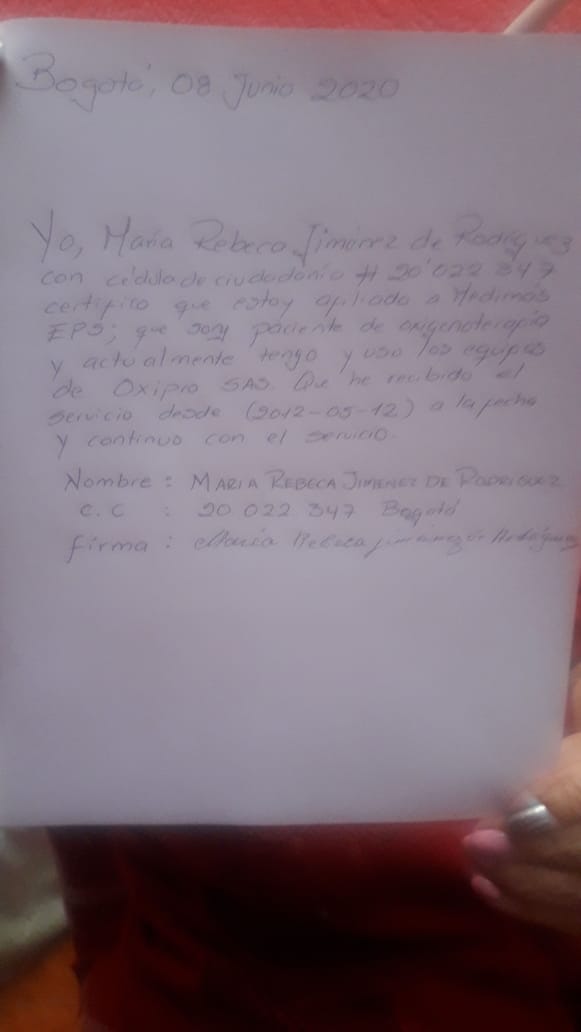 Bogotá, 08 Junio 2020
Yo, María Rebeca Jiménez de Rodríguez
con cédula de ciudadania # 20'022 347
certifico que estoy afiliado a Medimás
EPS; que soy paciente de oxigenoterapia
y actualmente tengo y uso los equipos
de Oxipro SAS. Que he recibido el
servicio desde (2012-05-12) a la fecha
y continuo con el servicio.
Nombre : MARIA REBECA JIMENEZ DE RODRIGUEZ
C.C : 20 022 347 Bogotá
firma : María Rebeca Jiménez de Rodríguez